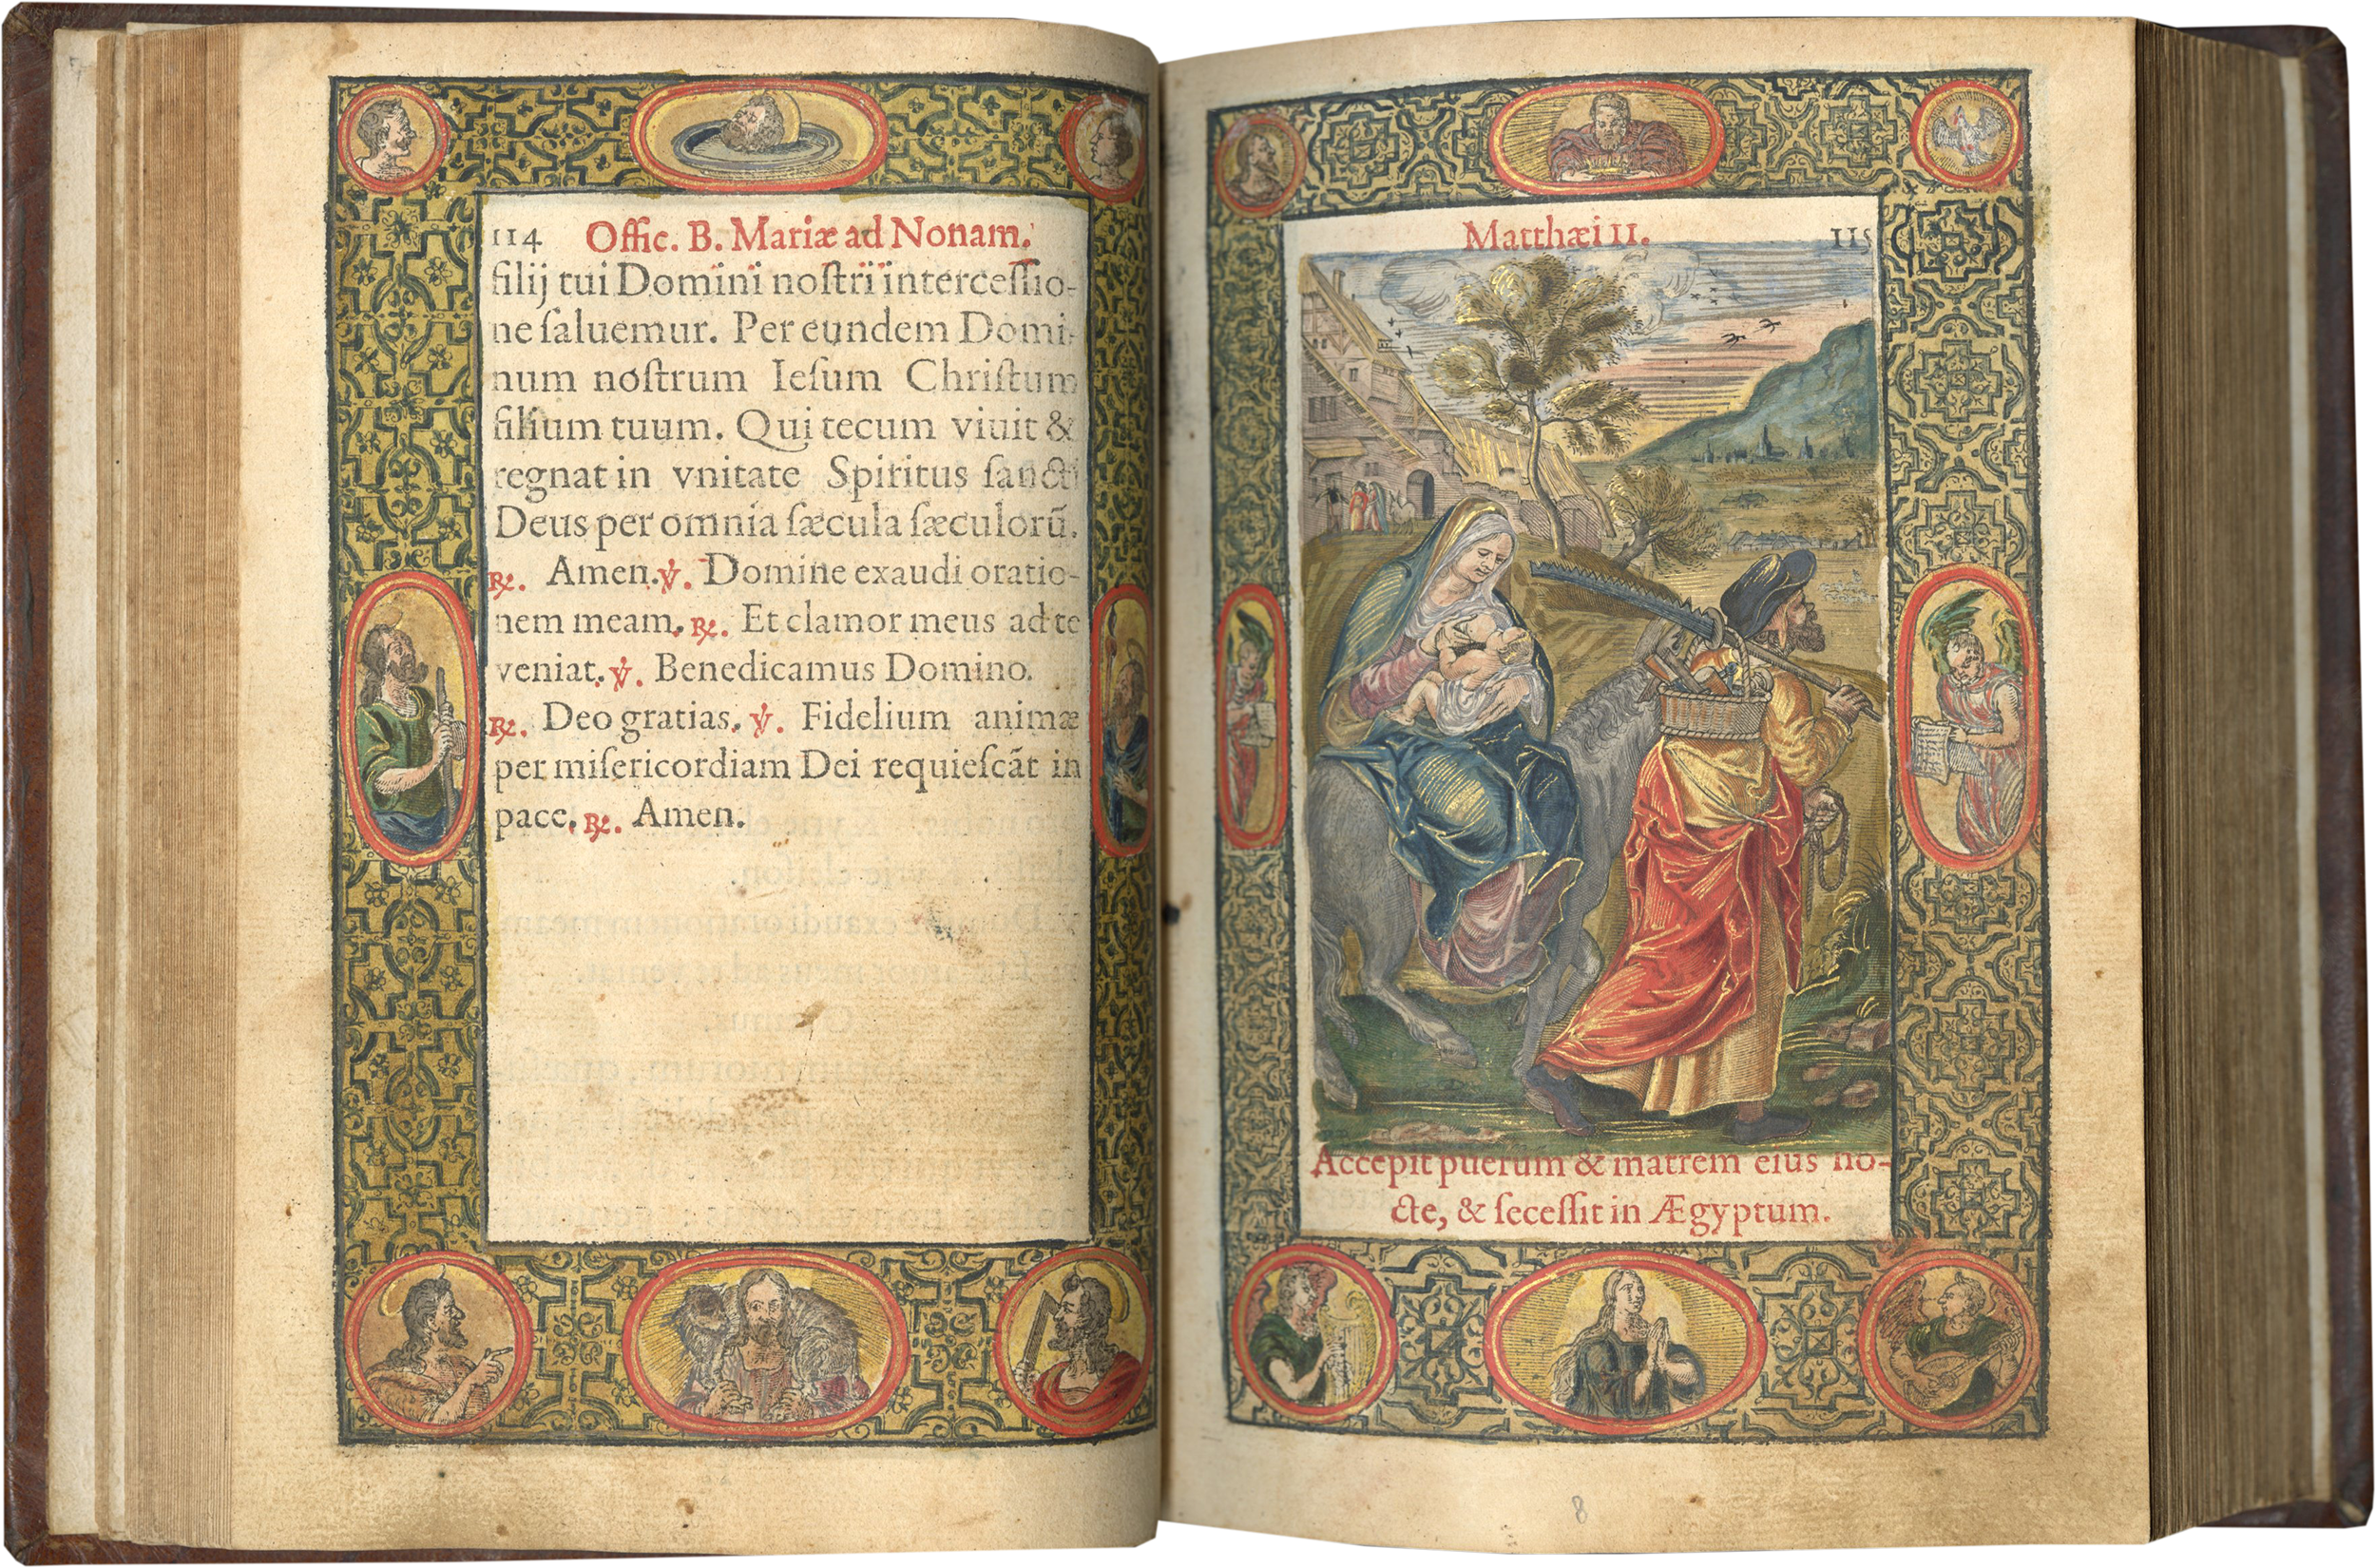 114 Offic. B. Mariæ ad Nonam.
filij tui Domini noſtri interceſſio-
ne ſaluemur. Per eundem Domi-
num noſtrum Ieſum Chriſtum
filium tuum. Qui tecum viuit &
regnat in vnitate Spiritus ſancti
Deus per omnia ſæcula ſæculorũ.
℟. Amen. ℣. Domine exaudi oratio-
nem meam. ℟. Et clamor meus ad te
veniat. ℣. Benedicamus Domino.
℟. Deo gratias. ℣. Fidelium animæ
per miſericordiam Dei requieſcãt in
pace. ℟. Amen.
Matthæi II. 115
Accepit puerum & matrem eius no-
cte, & ſeceſſit in Ægyptum.
8